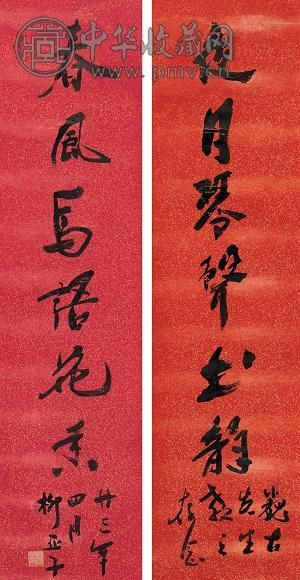 中华收藏网
www.pmvi.cn
夜月琴聲書韻
先生
春風鳥語花香
廿三年
四月
柳亞子